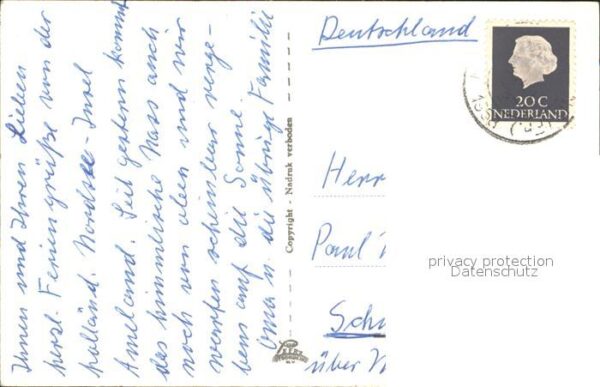 Ihnen und Ihren Lieben
herzl. Feriengrüße von der
holländ. Nordsee-Insel
Ameland. Seit gestern kommt
das himmlische Nass auch
noch von oben und wir
warten scheinbar verge-
bens auf die Sonne.
Oma u. die übrige Familie
Copyright - Nadruk verboden
Deutschland
20 C
NEDERLAND
Herr
Paul
privacy protection
Datenschutz
über